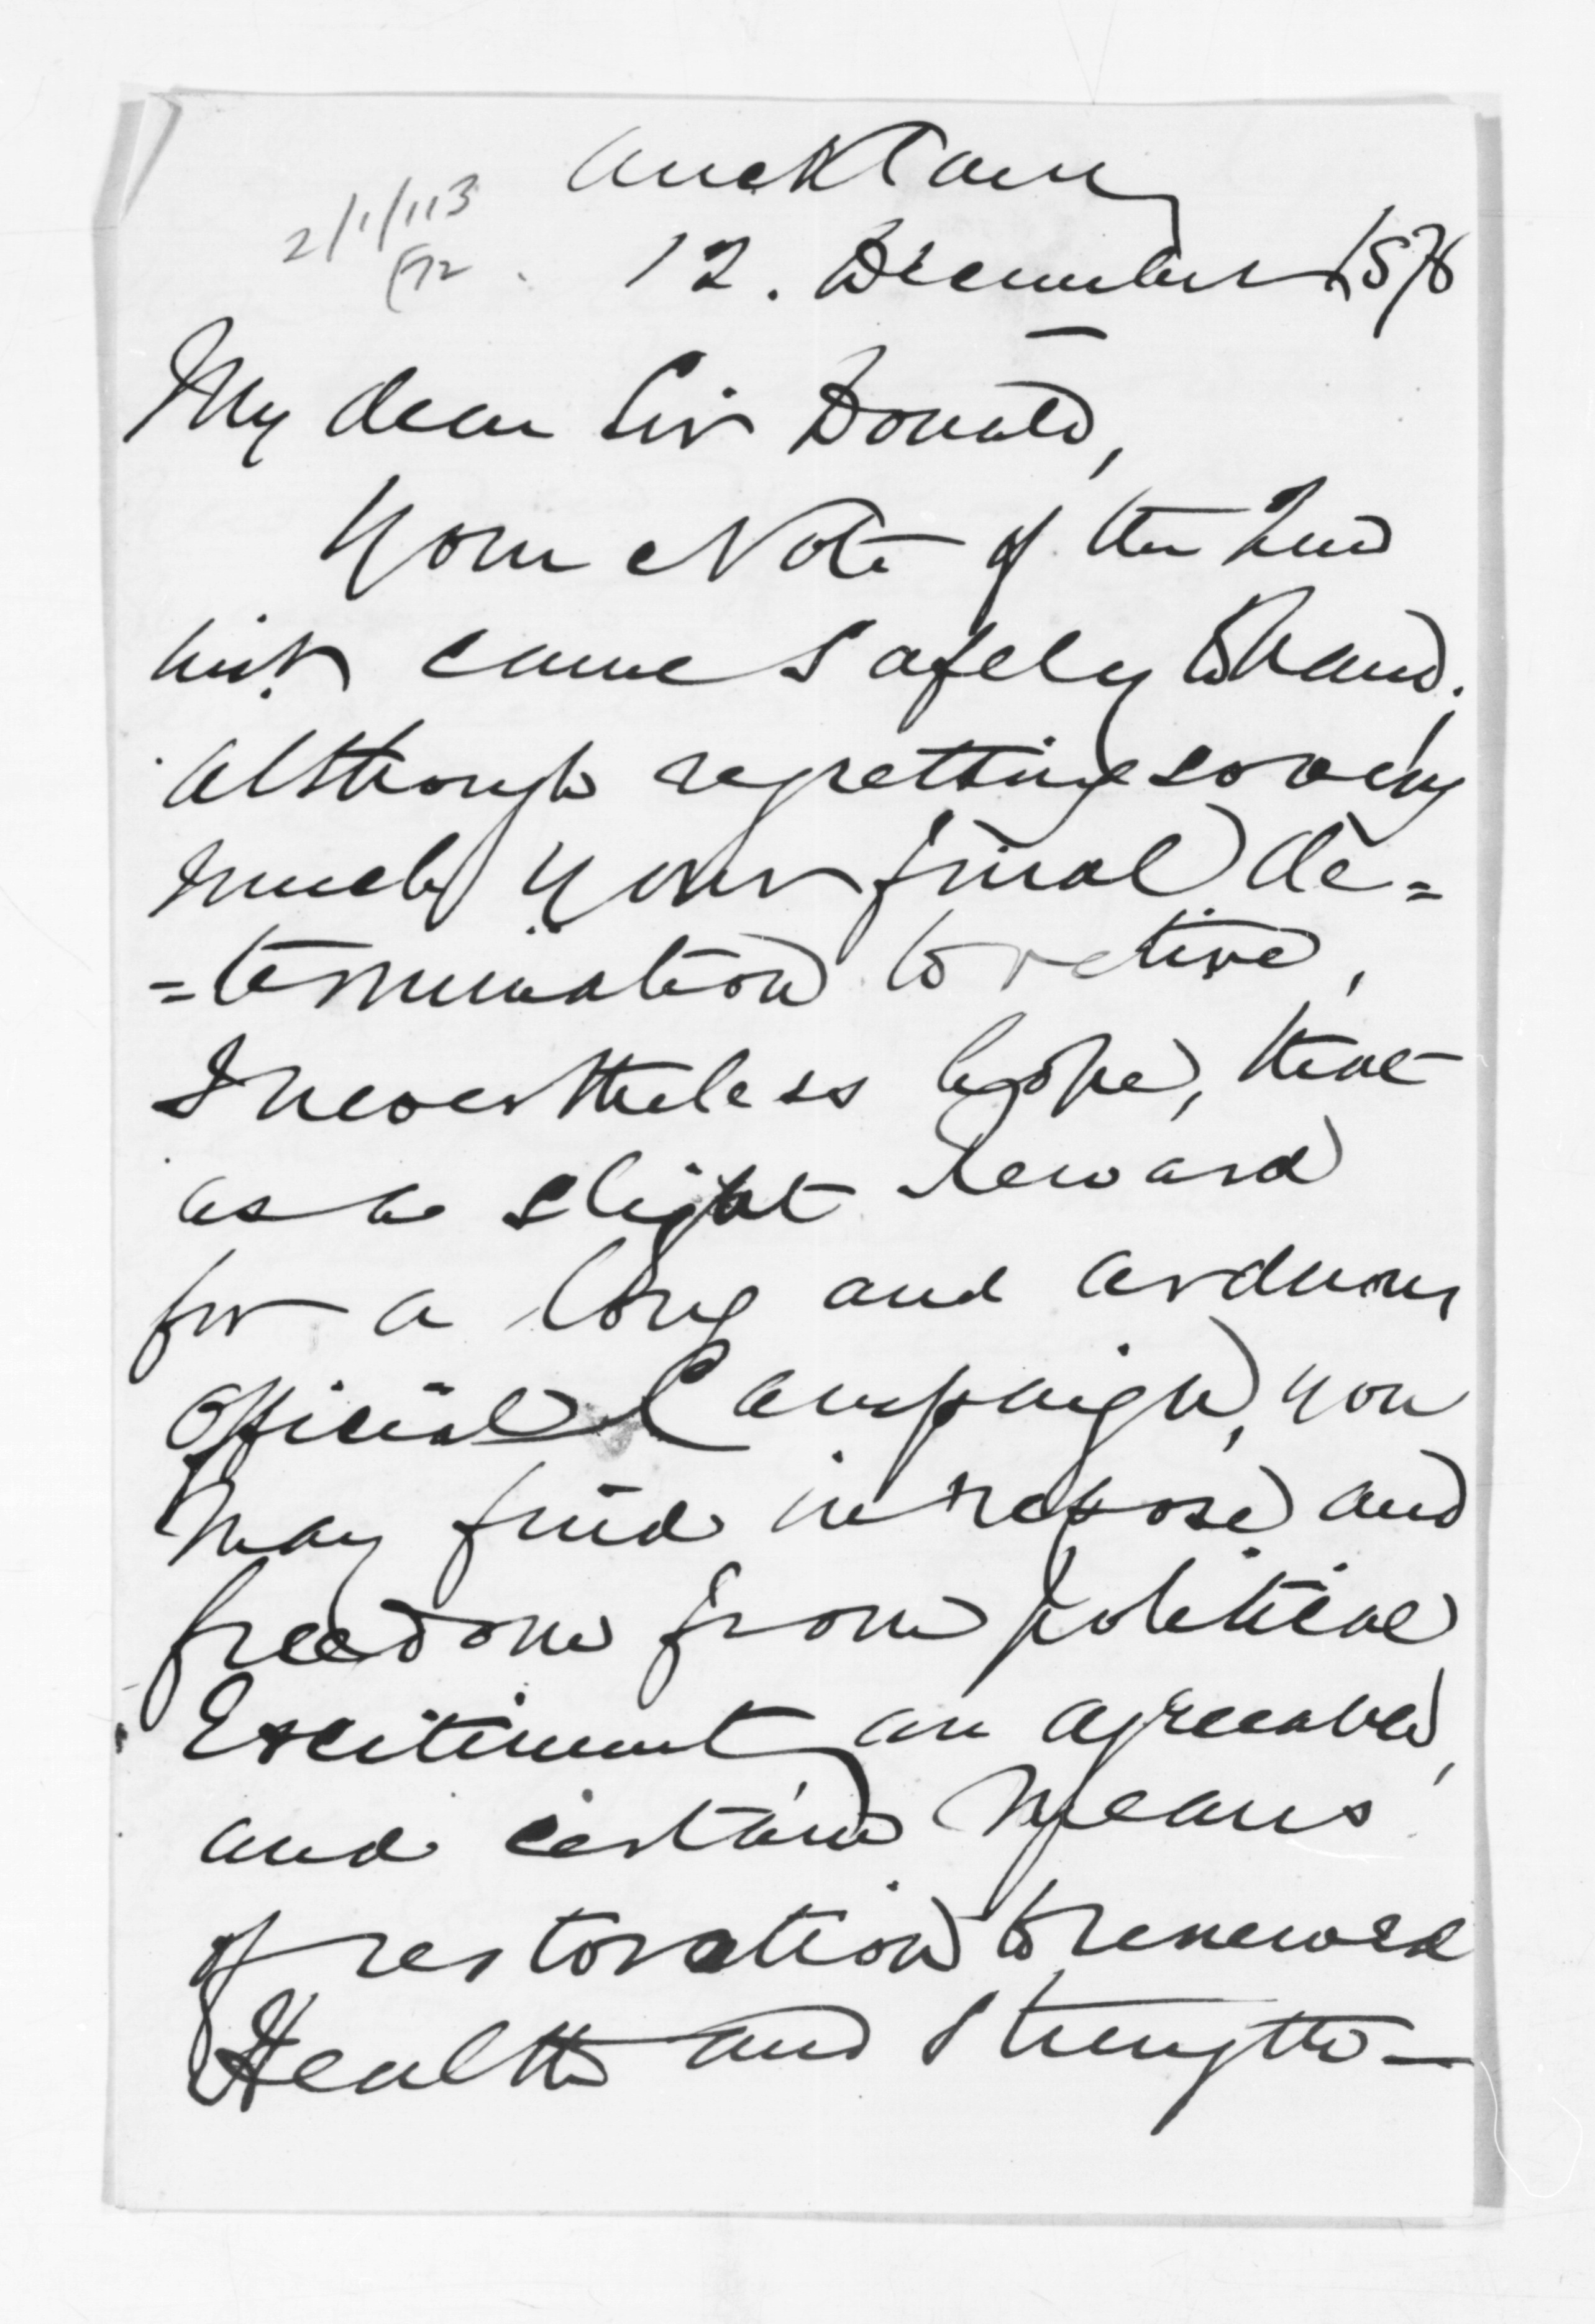 Auckland
2/1/113
12. December 1876
My dear Sir Donald,
Your Note of the 2nd
inst. came safely to hand.
Although regretting so very
much your final de=
=termination to retire,
I nevertheless hope, that
as a slight reward
for a long and arduous
official Campaign, you
may find in repose and
freedom from political
Excitement an agreeable,
and certain means
of restoration to renewed
Health and Strength —